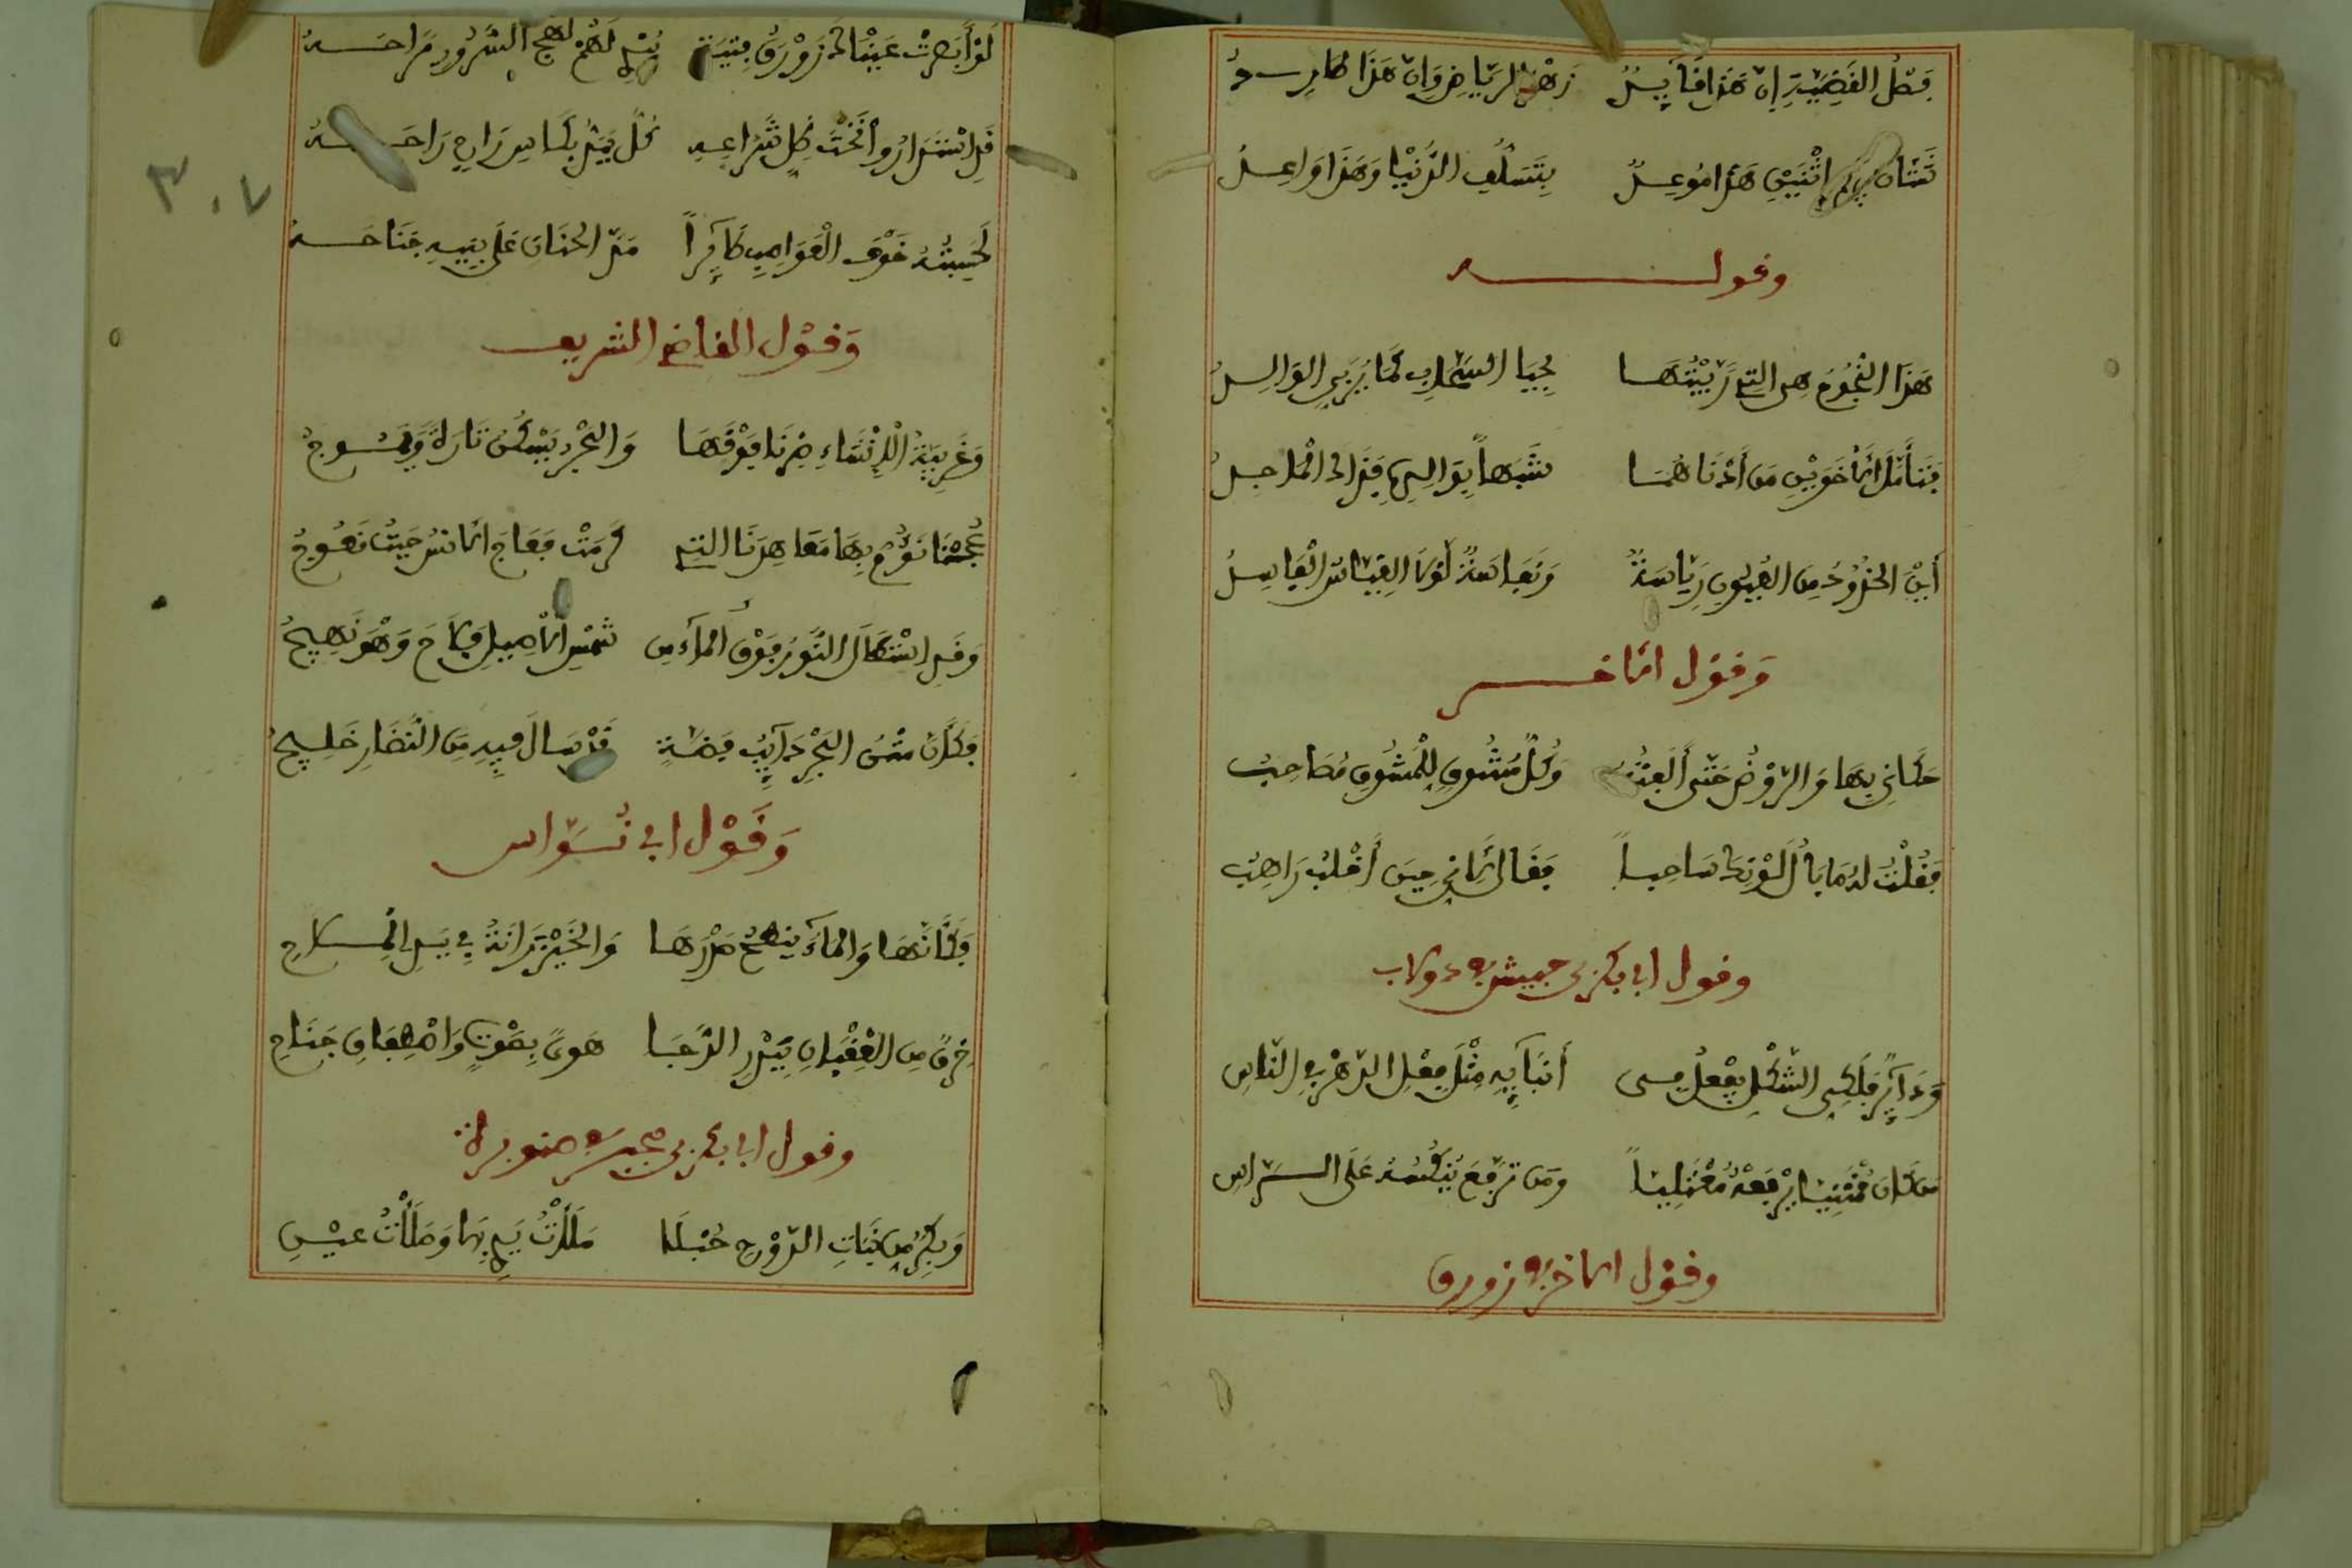 فصل القضية ان هذا قايد زهر الرياض وان هذا طارد
شتان بين اثنين هذا موعد بتسلب الدنيا وهذا واعد
وقوله
هذا النجوم هي التي ربيتها بحيا السحاب كما يربي الوالد
فتأمل الاخوين من أدناهما شبها بوالده فذاك الماجد
أين الخدود من العيون رياسة ونفاسة لولا القياس الفاسد
وقول الاخر
حكاني بهار الروض حتى ألفته وكل مشوق للمشوق مصاحب
فقلت له ما بال لونك شاحبا فقال لأني حين أقلب راهب
وقول ابي بكر بن حبيش في دولاب
ودائر فلكي الشكل يفعل في أنبائه مثل فعل الدهر في الناس
من كان ممتنيا يرفعه معتليا ومن ترفع ينكسه على الراس
وقول الاخر في زورق
لو أبصرت عيناك زورق فتية يبدي لهم لهج السرور مراحه
قد استداروا تحت ظل شراعه كل يمد بكاس راح راحه
لحسبته خوف العواصف طائرا مد الحنان على بنيه جناحه
وقول القاضي الشريف
وغريبة الانشاء سرنا فوقها والبحر يسكن تارة ويموج
عجنا نؤم بها معاهدنا التي كرمت فعاج الانس حيث نعوج
وقد استطال النور فوق الماء من شمس الأصيل ولاح وهو نهيج
فكأن متن البحر ذائب فضة قد سال فيه من النضار خليج
وقول ابي نواس
فكأنها والماء ينطح صدرها والخيزرانة في يد الملاح
خرق من العقبان يبتدر الدجا هوى بصوت واصطفاق جناح
وقول ابي بكر بن مجبر في صنوبرة
وبكر من بنات الدوح حبلى ملأت يدي بها وملأت عيني
٣٠٧